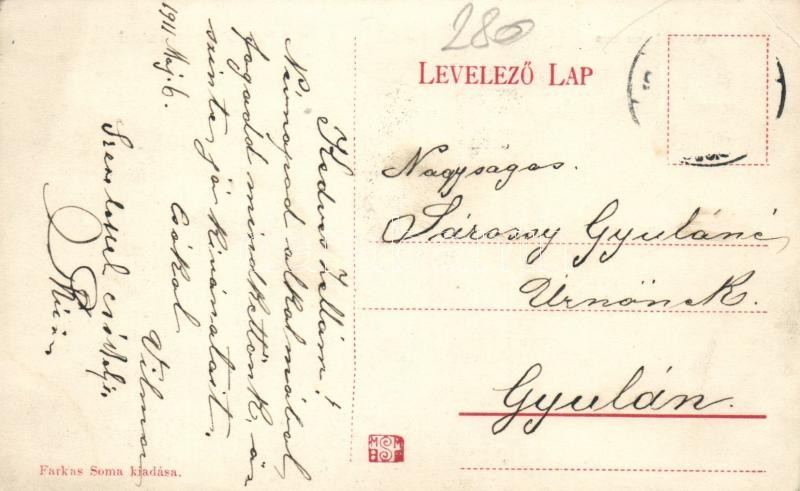 280
LEVELEZŐ LAP
Nagyságos.
Sárossy Gyuláné
Úrnőnek.
Gyulán.
Kedves Zellám!
Névnapod alkalmából
fogadd mindkettőnk ős
szinte jó kivánatait.
Csókol
Vilma
1911 Máj. 6.
Szeretettel
Farkas Soma kiadása.